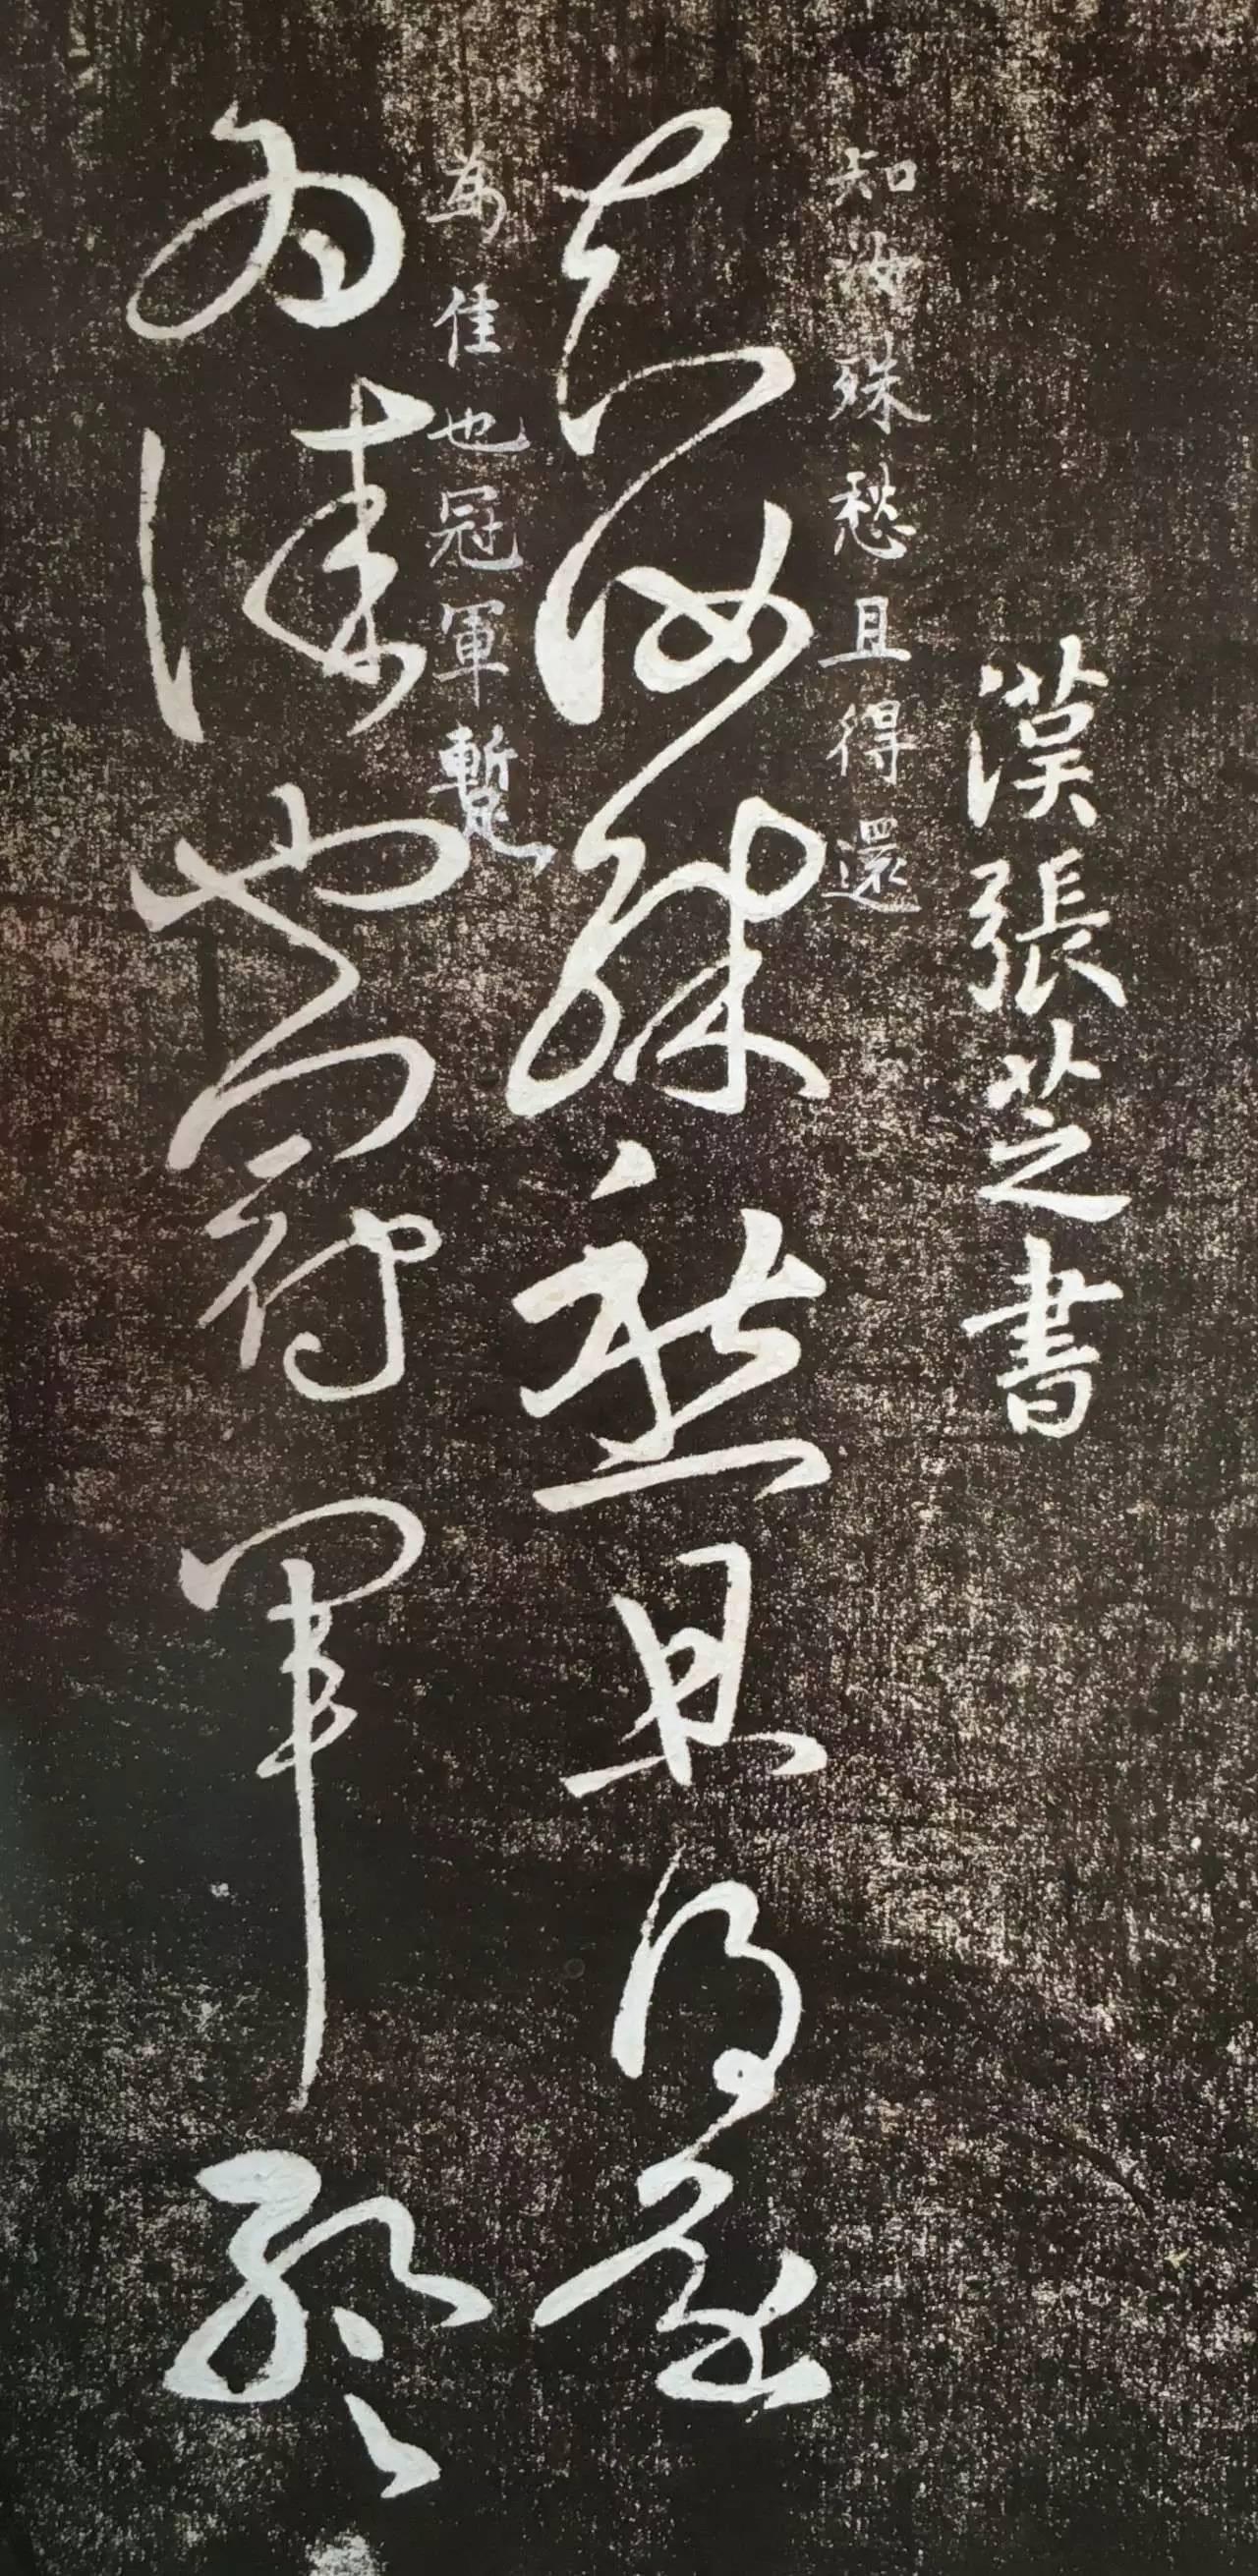 漢張芝書
知汝殊愁且得還
知汝殊愁且得還
為佳也冠軍蹔
為佳也冠軍蹔